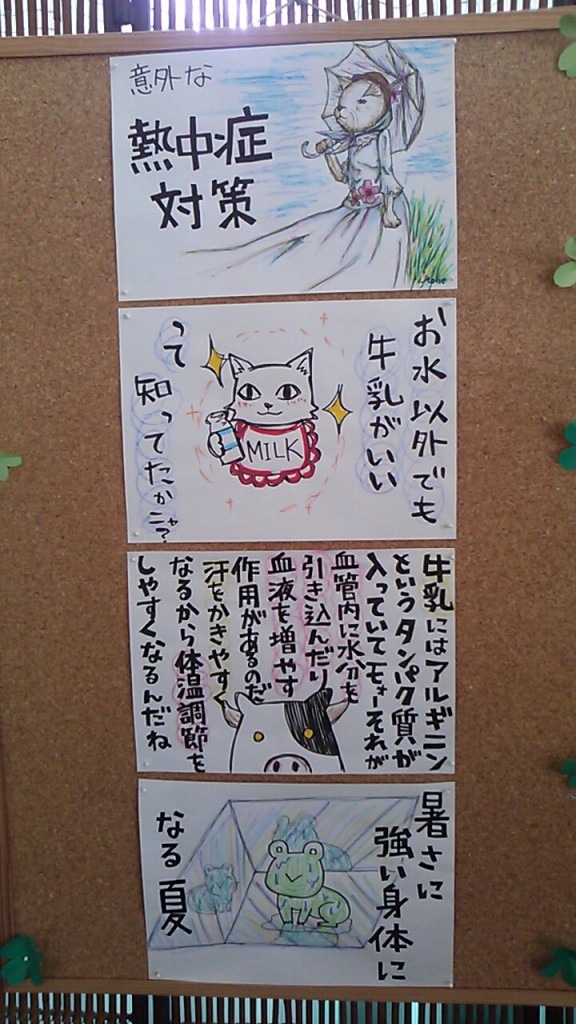 意外な
熱中症
対策
お水以外でも
牛乳がいい
って
知ってたかニャ?
MILK
牛乳にはアルギニン
というタンパク質が
入っていてモォーそれが
血管内に水分を
引き込んだり
血液を増やす
作用があるのだ
汗をかきやすく
なるから体温調節を
しやすくなるんだね
暑さに
強い身体に
なる夏